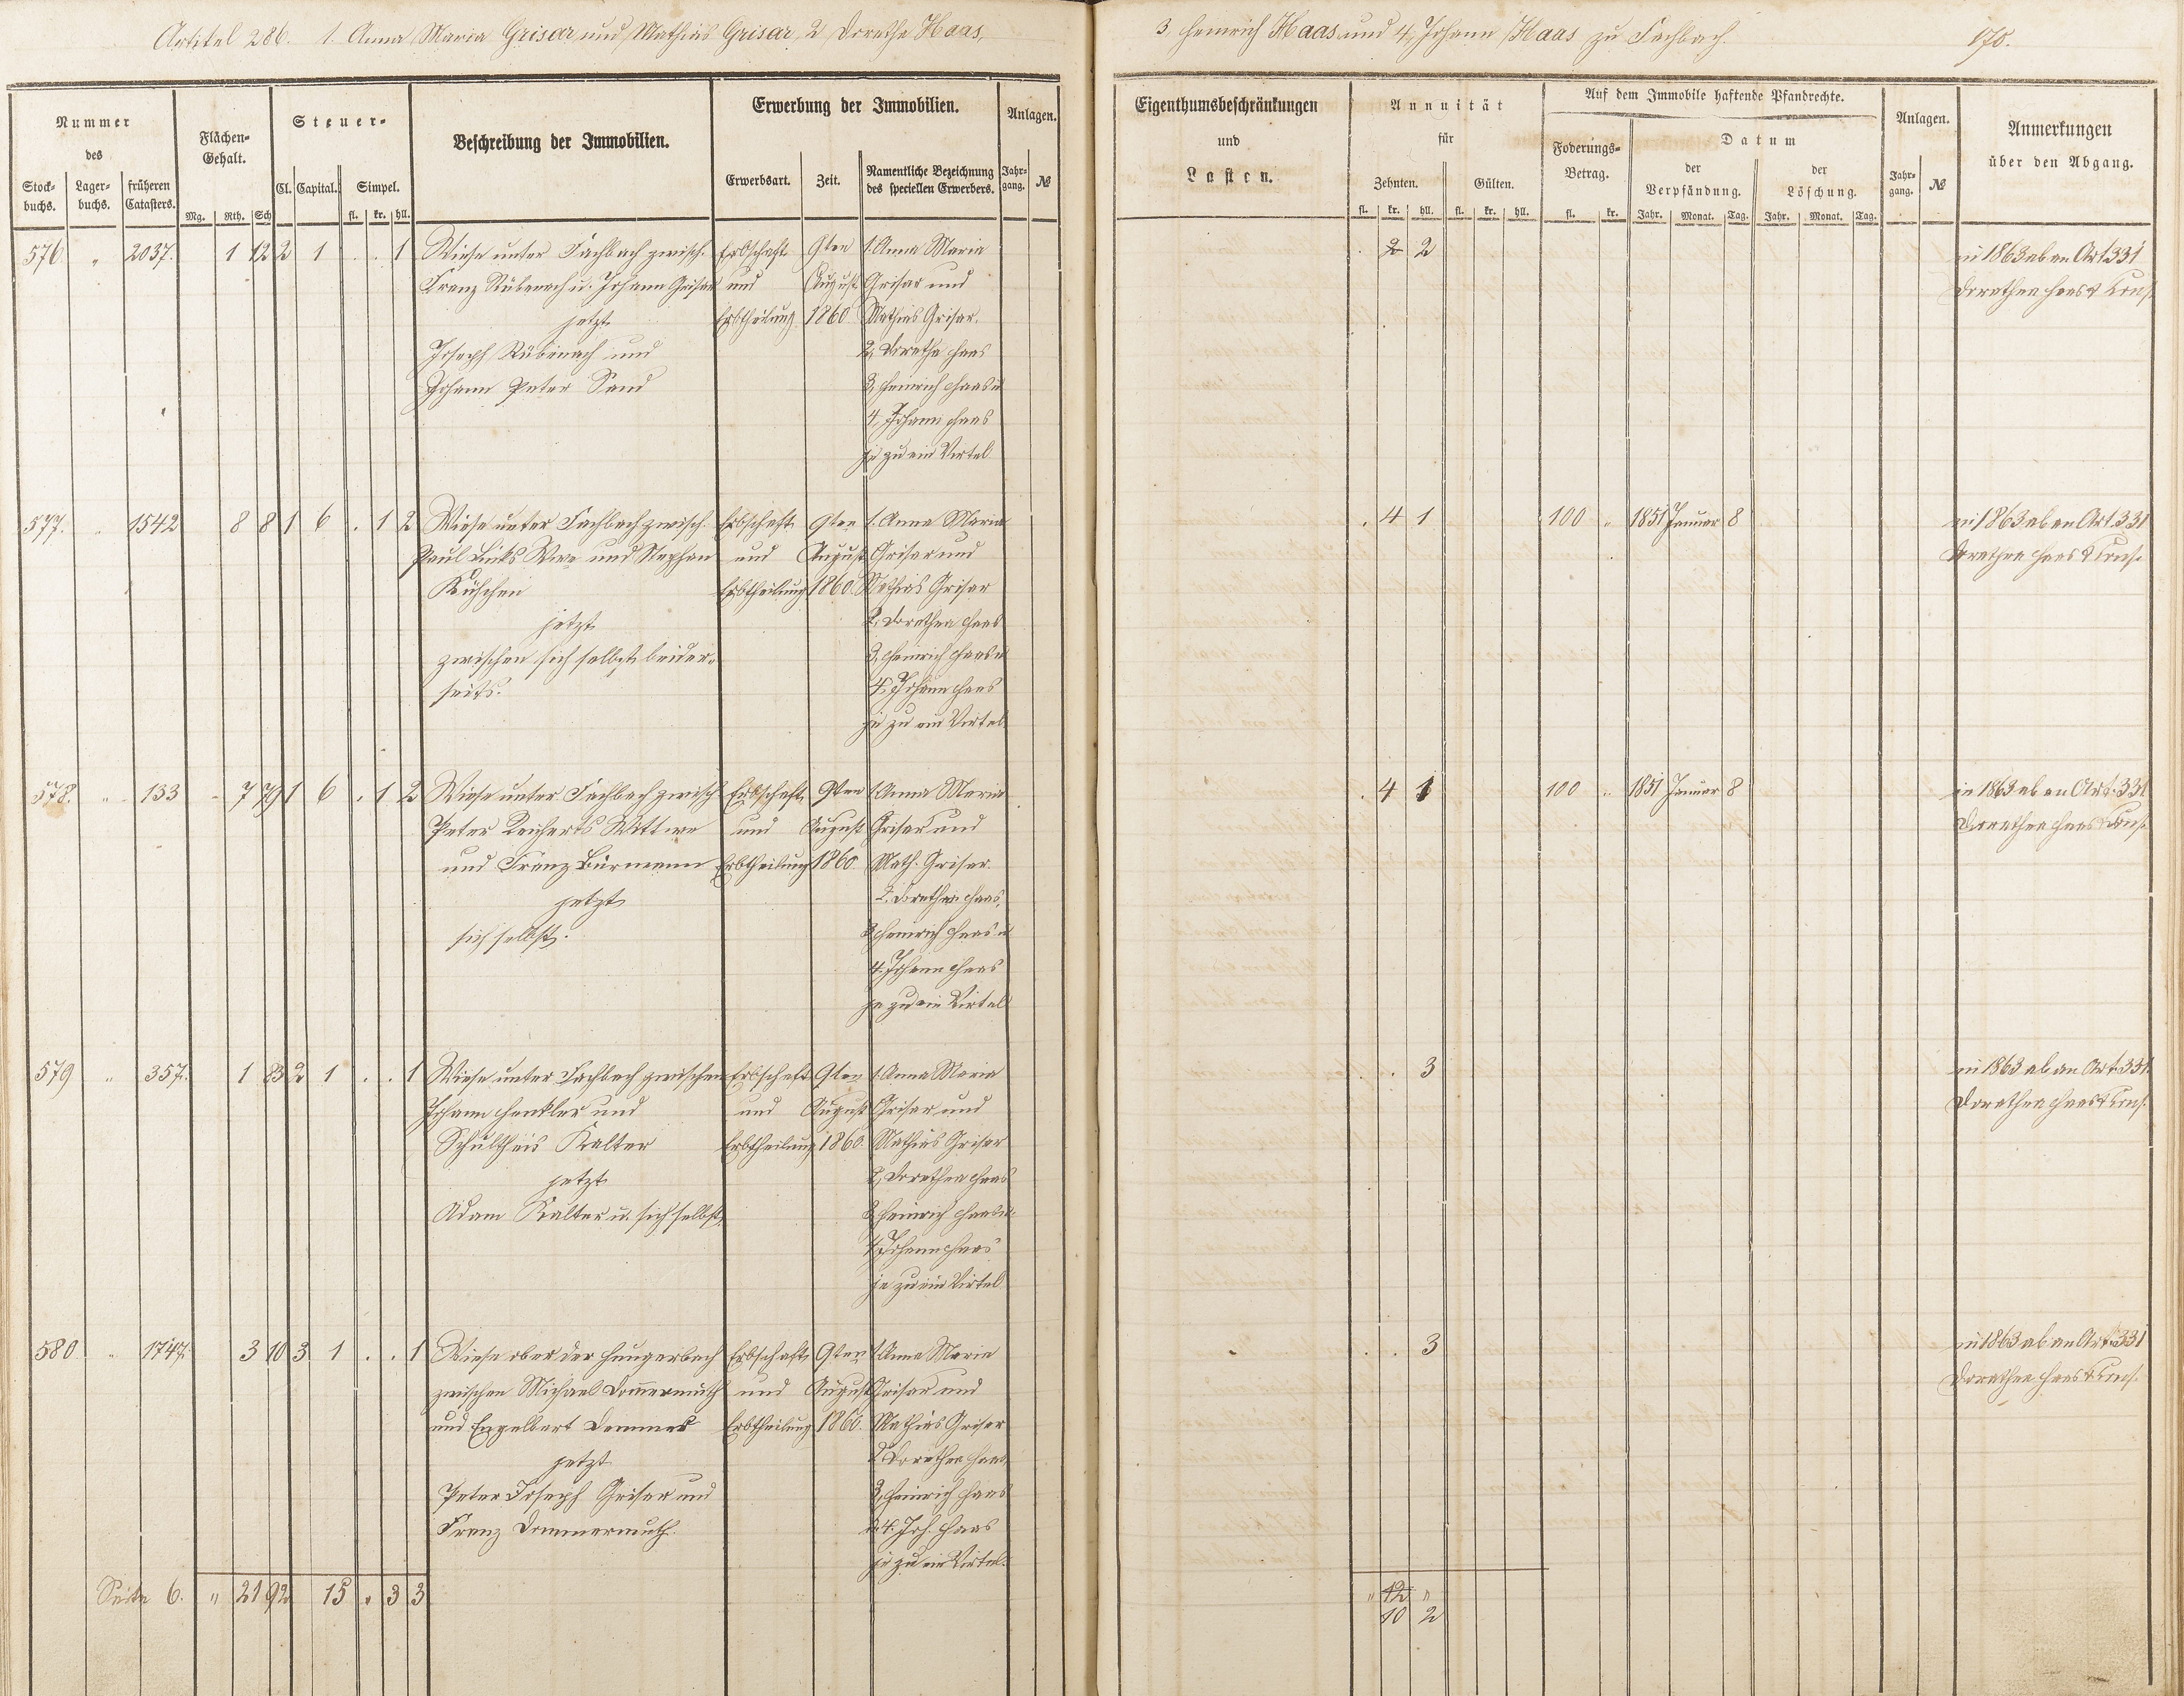 Artikel 286. 1. Anna Maria Grisar und Mathias Grisar, 2 Dorethe Haas,
3, Heinrich Haas und 4, Johann Haas zu Fachbach.
170.
Nummer des
Stockbuchs. Lagerbuchs. früheren Catasters.
Flächen-Gehalt.
Mg. Rth. Sch
Steuer-
Cl. Capital. Simpel.
fl. kr. hll.
Beschreibung der Immobilien.
Erwerbung der Immobilien.
Erwerbsart. Zeit. Namentliche Bezeichnung des speciellen Erwerbers.
Anlagen.
Jahrgang. №
Eigenthumsbeschränkungen
und
Lasten.
Annuität
für
Zehnten. Gülten.
fl. kr. hll. fl. kr. hll.
Auf dem Immobile haftende Pfandrechte.
Foderungs-Betrag.
fl. kr.
Datum
der Verpfändung. der Löschung.
Jahr. Monat. Tag. Jahr. Monat. Tag.
Anlagen.
Jahrgang. №
Anmerkungen
über den Abgang.
576 " 2037. 1 12 2 1 . . 1 Wiese unter Fachbach zwisch. Erbschaft 9ten 1. Anna Maria
Franz Rübenach u. Johann Grisar und August Grisar und
jetzt Erbtheilung 1860 Mathias Grisar.
Joseph Rübenach und 2, Dorethe Haas
Johann Peter Sand 3, Heinrich Haas u
4, Johann Haas
je zu ein Virtel
. 2 2
in 1863 ab an Art 331
Dorethea Haas & Cons.
577. " 1542 8 8 1 6 . 1 2 Wiese unter Fachbach zwisch. Erbschaft 9ten 1. Anna Maria
Paul Links Wwe und Stephan und August Grisar und
Erbtheilung 1860. Mathias Grisar
jetzt 2, Dorethea Haas
zwischen sich selbst beider- 3, Heinrich Haas u
seits. 4, Johann Haas
je zu ein Virtel
. 4 1 100 " 1851 Januar 8
in 1863 ab an Art 331
Dorethea Haas & Cons.
578. " 133 - 7 79 1 6 . 1 2 Wiese unter Fachbach zwisch Erbschaft 9ten 1. Anna Maria
Peter Reicherts Wittwe und August Grisar und
und Franz Bürmann Erbtheilung 1860. Math. Grisar.
jetzt 2. Dorethea Haas,
sich selbst. 3, Heinrich Haas u
4. Johann Haas
je zu ein Virtel
. 4 1 100 " 1851 Januar 8
in 1863 ab an Art. 331
Dorethea Haas & Cons.
579 " 357. 1 83 2 1 . . 1 Wiese unter Fachbach zwischen Erbschaft 9ten 1. Anna Maria
Johann Henkler und und August Grisar und
Schultheis Kalter Erbtheilung 1860. Mathias Grisar
jetzt 2, Dorethea Haas
Adam Kalter u. sich selbst 3, Heinrich Haas u.
4, Johann Haas
je zu ein Virtel
. . 3
in 1863 ab an Art 331.
Dorethea Haas & Cons.
580 " 1747. 3 10 3 1 . . 1 Wiese ober der Hungerbach Erbschaft 9ten 1. Anna Maria
zwischen Michael Dom̅ermuth und August Grisar und
und Engelbert Demmer Erbtheilung 1860. Mathias Grisar
jetzt 2. Dorethea Haas
Peter Joseph Grisar und 3, Heinrich Haas
Franz Dommermuth. u. 4. Joh. Haas
je zu ein Virtel.
. . 3
in 1863 ab an Art. 331
Dorethea Haas & Cons.
Seite 6. " 21 92 15 " 3 3
" 12 "
10 2